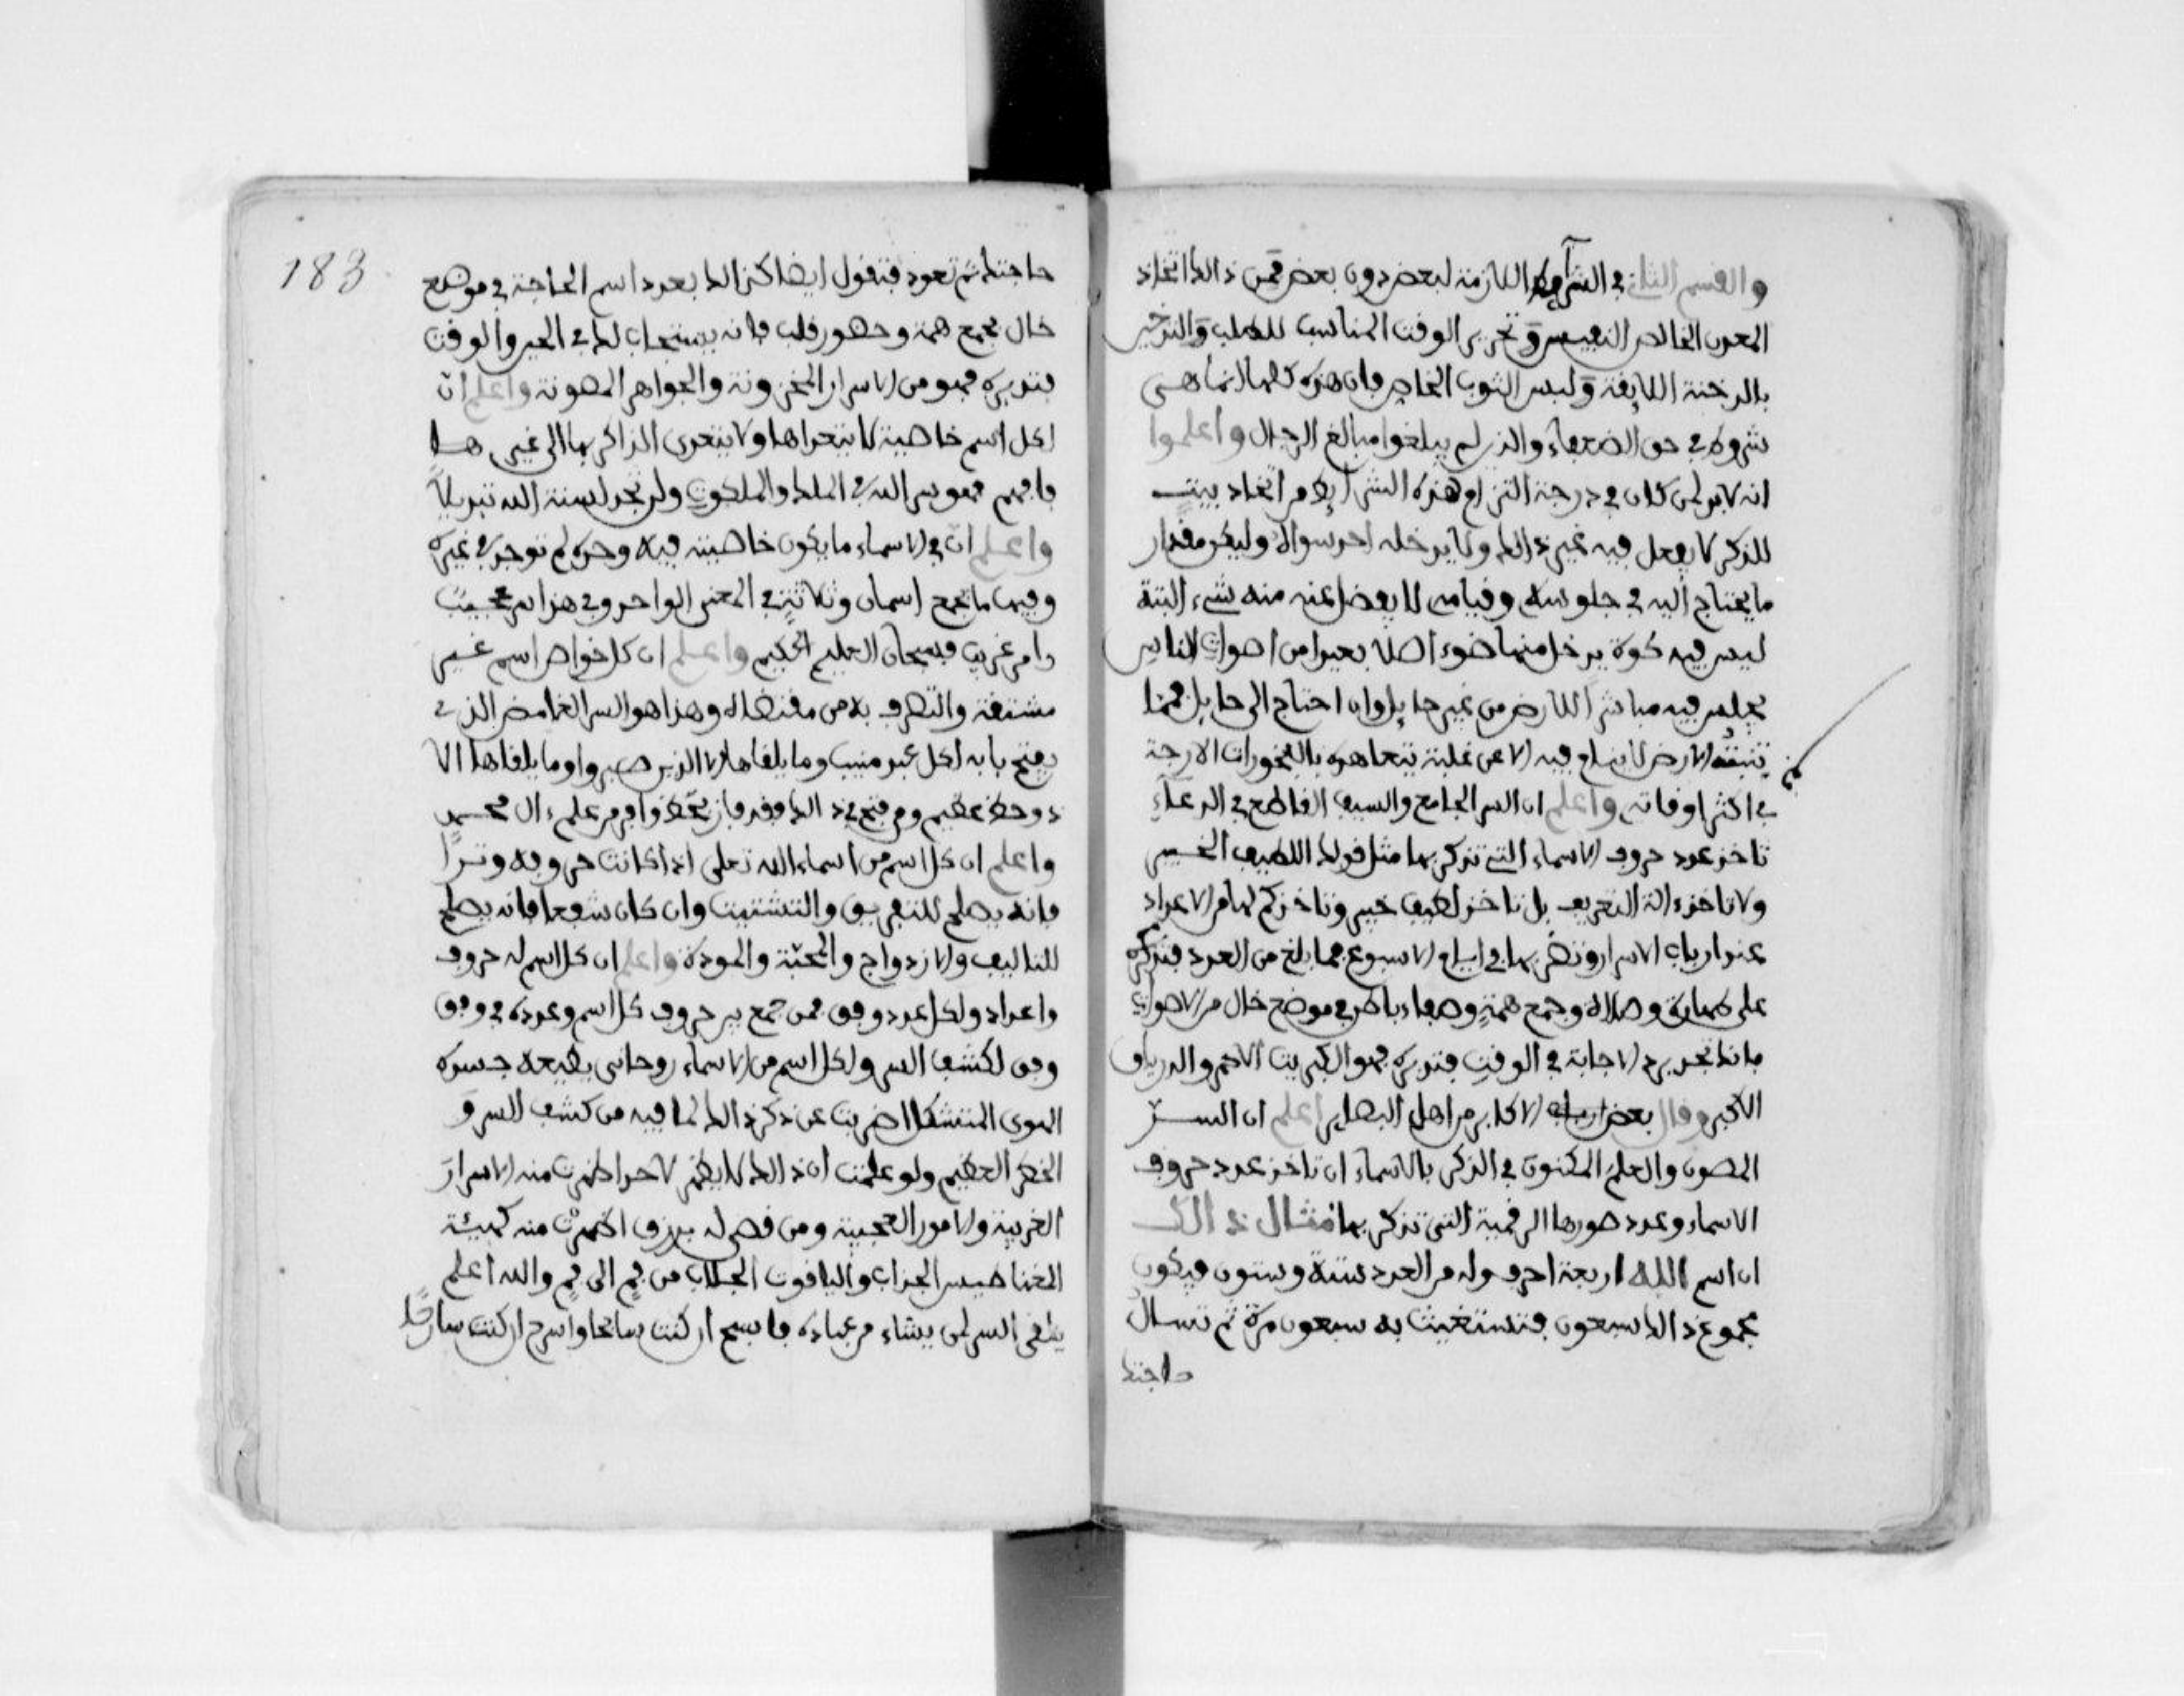 والقسم الثاني في الشرآيط اللازمة لبعض دون بعض فمن ذالك اتخاذ
المعدن الخالص النفيس وتحرير الوقت المناسب للطلب والتدخين
بالدخنة اللايقة ولبس الثوب الخاص فان هذه كلها انما هي
شروط في حق الضعفاء والذين لم يبلغوا مبالغ الرجال واعلموا
انه لابد لمن كان في درجة التزام هذه الشرآيط من اتخاذ بيت
للذكر لا يفعل فيه غير ذالك ولا يدخله احد سواه وليكن مقدار
ما يحتاج اليه في جلوسه وقيامه لا يفضل عنه منه شيء البتة
ليس فيه كوة يدخل منها ضوء اصلا بعيدا من اصوات الناس
يجلس فيه مباشرا للارض من غير حايل وان احتاج الى حايل فمما
تنبته الارض لا ينام فيه الا عن غلبة يتعاهده بالبخورات الارجة
في اكثر اوقاته واعلم ان السر الجامع والسيف القاطع في الدعآء
تاخذ عدد حروف الاسماء التي تذكر بها مثل قولك اللطيف الخبير
ولا تاخذ ءالة التعريف بل تاخذ لطيف خبير وتاخذ كم لها من الاعداد
عند ارباب الاسرار وتضربها في ايام الاسبوع فما بلغ من العدد فتذكره
على طهارة وصلاة وجمع همة وصفاء باطن في موضع خال من الاصوات
فانك تجد سرع الاجابة في الوقت فتدبره فهو الكبريت الاحمر والدرياق
الاكبر وقال بعض الاكابر من اهل البصاير اعلم ان الســر
المصون والعلم المكنون في الذكر بالاسماء ان تاخذ عدد حروف
الاسماء وعدد صورها الرقمية التي تذكر بها مثال ذالك
ان اسم الله اربعة احرف وله من العدد ستة وستون فيكون
مجموع ذالك سبعون فتستغيث به سبعون مرة ثم تسال
حاجتك
183
حاجتك ثم تعود فتقول ايضا كذالك بعدد اسم الحاجة في موضع
خال بجمع همة وحضور قلب فانه يستجاب لك في الحين والوقت
فتدبره فهو من الاسرار المخزونة والجواهر المصونة واعلم ان
لكل اسم خاصية لا يتعداها ولا يتعدى الذاكر بها الى غيرها
فافهم فهو سر الله في الملك والملكوت ولن تجد لسنة الله تبديلا
واعلم ان في الاسماء ما يكون خاصيته فيه وحده لم توجد في غيره
وفيها ما تجمع اسمان وثلاثة في المعنى الواحد وفي هذا سر عجيب
وامر غريب فسبحان العليم الحكيم واعلم ان كل خواص اسم غير
مشتقة والتصرف به من مقتضاه وهذا هو السر الغامض الذي
يفتح بابه لكل عبد منيب وما يلقاها الا الذين صبروا وما يلقاها الا
ذو حظ عظيم ومن فتح في ذالك فقد فاز بحظ وافر من علم ءال محمد
واعلم ان كل اسم من اسماء الله تعلى اذا كانت حروفه وترا
فانه يصلح للتفريق والتشتيت وان كان شفعا فانه يصلح
للتاليف والازدواج والمحبة والمودة واعلم ان كل اسم له حروف
واعداد ولكل عدد وفق فمن جمع بين حروف كل اسم وعدده في وفق
وفق لكشف السر ولكل اسم من الاسماء روحاني بطبعه جسده
القوى المتشكل اضربت عن ذكر ذالك لما فيه من كشف السر و
الخطر العظيم ولو علمت ان ذالك لا يظهر لاحد اظهرت منه الاسرار
الغريبة والامور العجيبة ومن قصر له برزق اظهرت منه كهيئة
المغناطيس الجذاب والياقوت الجلاب من فم الى فم والله اعلم
يلقى السر لمن يشاء من عباده فاسبح ان كنت سابحا واسرح ان كنت سارحا